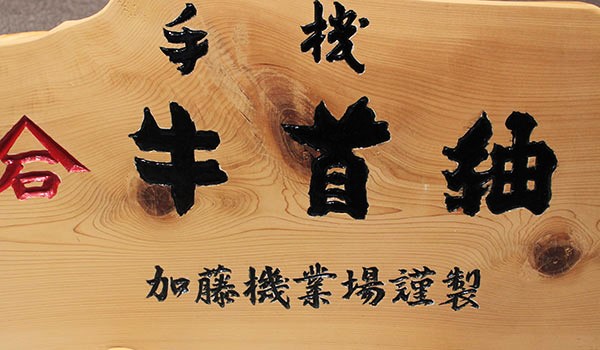 手機
石
牛首紬
加藤機業場謹製